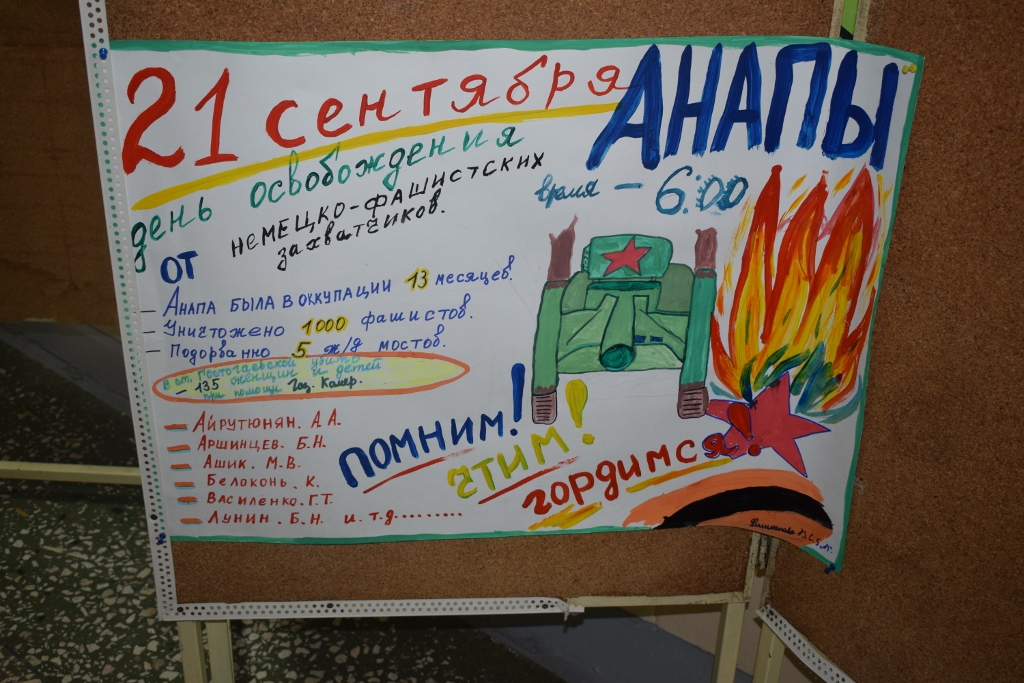 21 сентября АНАПЫ
день освобождения
от немецко-фашистских
захватчиков.
время - 6:00
- Анапа была в оккупации 13 месяцев.
- Уничтожено 1000 фашистов.
- Подорванно 5 ж/д мостов.
в ст. Гостогаевской убито
- 135 женщин и детей
при помощи Газ. Камер.
- Айрутюнян. А.А.
- Аршинцев. Б.Н.
- Ашик. М.В.
- Белоконь. К.
- Василенко. Г.Т.
- Лунин. Б.Н. и.т.д.........
ПОМНИМ!
ЧТИМ!
гордимся!